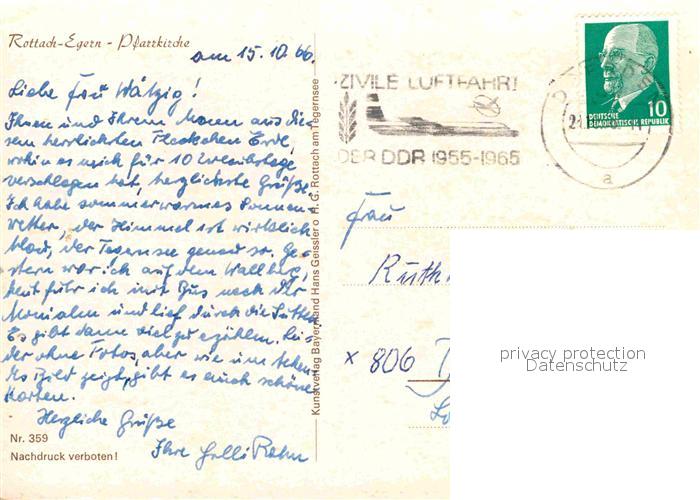 Rottach-Egern - Pfarrkirche
am 15.10.66.
Liebe Frau Wätzig!
Ihnen und Ihrem Mann aus die-
sem herrlichsten Fleckchen Erde,
wohin es mich für 10
verschlagen hat, herzlichste Grüße.
Ich habe sommerwarmes Sonnen-
wetter, der Himmel ist wirklich
blau, der Tegernsee genau so. Ge-
stern war ich auf dem Wallberg,
heut fuhr ich mit Bus nach der
und lief durch die
Es gibt dann viel zu erzählen. Lei-
der ohne Fotos, aber wie umsteh-
des Bild zeigt, gibt es auch schöne
Karten.
Herzliche Grüße
Ihre
Nr. 359
Nachdruck verboten!
Kunstverlag Bayernland Hans Geissler o H. G. Rottach am Tegernsee
ZIVILE LUFTFAHRT
DER DDR 1955-1965
21.
a
10
DEUTSCHE
DEMOKRATISCHE REPUBLIK
Frau
Ruth
x 806
privacy protection
Datenschutz